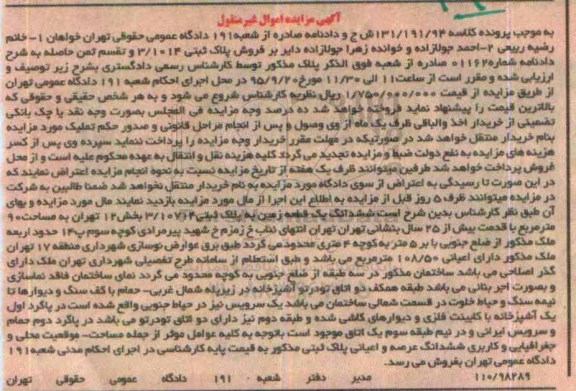 آگهی مزایده اموال غیرمنقول
به موجب پرونده کلاسه ۱۳۱/۱۹۱/۹۴ش ج و دادنامه صادره از شعبه ۱۹۱ دادگاه عمومی حقوقی تهران خواهان ۱-خانم
رضیه ربیعی ۲-احمد جولازاده و خوانده زهرا جولازاده دایر بر فروش پلاک ثبتی ۳/۱۰۱۴ و تقسم ثمن حاصله به شرح
دادنامه شماره ۰۱۱۶۲ صادره از شعبه فوق الذکر پلاک مذکور توسط کارشناس رسمی دادگستری بشرح زیر توصیف و
ارزیابی شده و مقرر است از ساعت ۱۱ الی ۱۱/۳۰ مورخ ۹۵/۹/۲۰ در محل اجرای احکام شعبه ۱۹۱ دادگاه عمومی تهران
از طریق مزایده از قیمت ۱/۷۵۰/۰۰۰/۰۰۰ ریال نظریه کارشناس شروع می شود و به هر شخص حقیقی و حقوقی که
بالاترین قیمت را پیشنهاد نماید فروخته خواهد شد ده درصد وجه مزایده فی المجلس بصورت وجه نقد یا چک بانکی
تضمینی از خریدار اخذ والباقی ظرف یک ماه از وی وصول و پس از انجام مراحل قانونی و صدور حکم تملیک مورد مزایده
بنام خریدار منتقل خواهد شد در صورتیکه در مهلت مقرر خریدار وجه مزایده را پرداخت ننماید سپرده وی پس از کسر
هزینه های مزایده به نفع دولت ضبط و مزایده تجدید می گردد کلیه هزینه نقل و انتقال به عهده محکوم علیه است و از محل
فروش پرداخت خواهد شد طرفین میتوانند ظرف یک هفته از تاریخ مزایده نسبت به نحوه انجام مزایده اعتراض نمایند که
در این صورت تا رسیدگی به اعتراض از سوی دادگاه مورد مزایده به نام خریدار منتقل نخواهد شد ضمنا طالبین به شرکت
در مزایده میتوانند ظرف ۵ روز قبل از مزایده به اطلاع این اجرا از مال مورد مزایده بازدید نمایند مال مورد مزایده و بهای
آن طبق نظر کارشناس بدین شرح است ششدانگ یک قطعه زمین به پلاک ثبتی ۳/۱۰۷۱۴ بخش ۱۲ تهران به مساحت ۹۰
مترمربع با قدمت بیش از ۲۵ سال بنشانی تهران تهران انتهای خ زمزم خ شهید پیرمرادی کوچه سوم پ۱۴ حدود اربعه
ملک مذکور از ضلع جنوبی با بر ۵ متر به کوچه ۴ متری محدود می گردد طبق برق عوارض نوسازی شهرداری منطقه ۱۷ تهران
ملک مذکور دارای اعیانی ۱۰۸/۵۰ مترمربع می باشد و طبق استعلام از سامانه طرح تفصیلی شهرداری تهران ملک دارای
گذر اصلاحی می باشد ساختمان مذکور در سه طبقه از ضلع جنوبی به کوچه محدود می گردد نمای ساختمان فاقد نماسازی
و بصورت اجر بنائی می باشد طبقه همکف دو اتاق تودرتو آشپزخانه در زیرپله شمال غربی- حمام با کف سنگ و دیوارها تا
نیمه سنگ و حیاط خلوت در قسمت شمالی ساختمان می باشد یک سرویس نیز در حیاط جنوبی واقع شده است در پاگرد اول
یک آشپزخانه با کابینت فلزی و دیوارهای کاشی شده و طبقه دوم نیز دارای دو اتاق تودرتو می باشد در پاگرد دوم حمام
و سرویس ایرانی و در نیم طبقه سوم یک اتاق موجود است باتوجه به کلیه عوامل موثر از جمله مساحت- موقعیت محلی و
جغرافیایی و کاربری ششدانگ عرصه و اعیانی پلاک ثبتی مذکور به قیمت پایه کارشناسی در اجرای احکام مدنی شعبه ۱۹۱
دادگاه عمومی تهران بفروش می رسد.
۱۱۰/۹۸۲۸۹ مدیر دفتر شعبه ۱۹۱ دادگاه عمومی حقوقی تهران